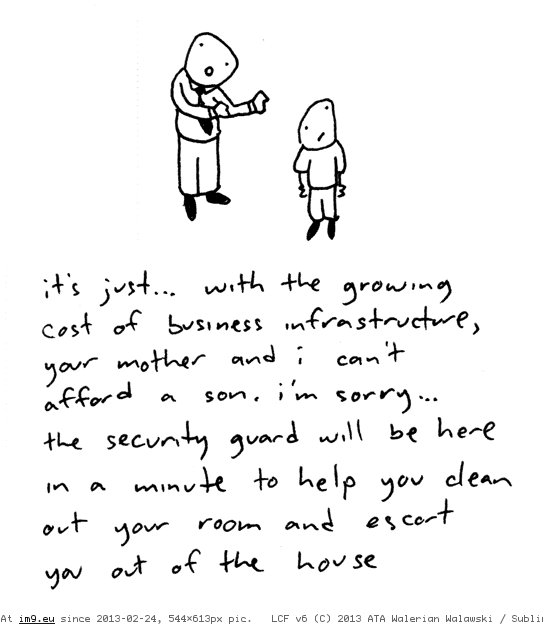 it's just... with the growing
cost of business infrastructure,
your mother and i can't
afford a son. i'm sorry...
the security guard will be here
in a minute to help you clean
out your room and escort
you out of the house
At im9.eu since 2013-02-24, 544×613px pic. LCF v6 (C) 2013 ATA Walerian Walawski / Sublin